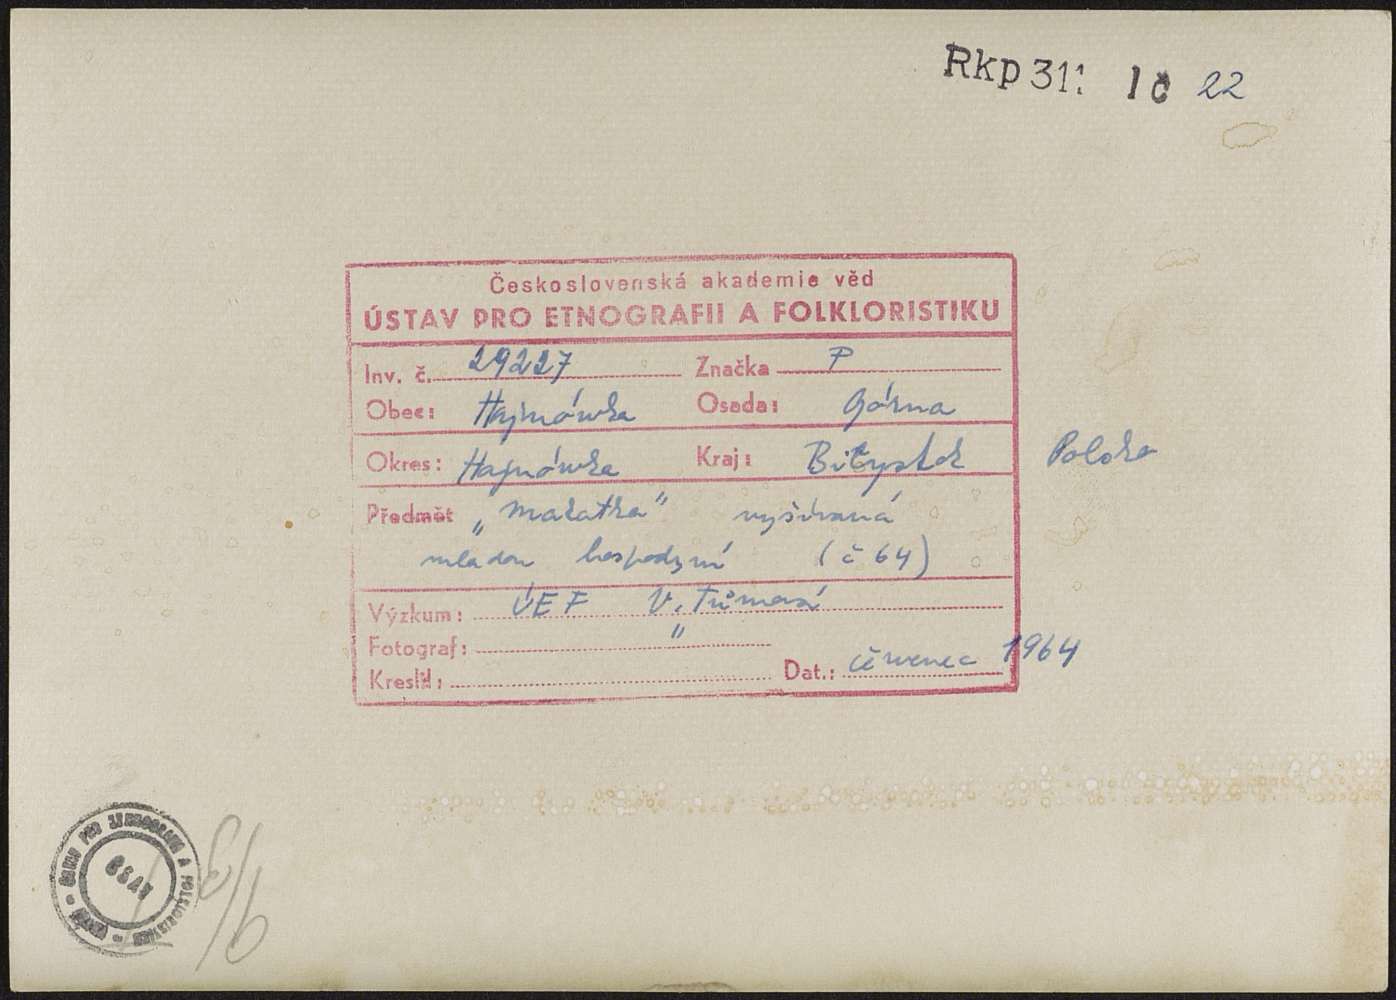 Rkp 311 IČ 22
Československá akademie věd
ÚSTAV PRO ETNOGRAFII A FOLKLORISTIKU
Inv. č. 29227 Značka P
Obec: Hajnówka Osada: Górna
Okres: Hajnówka Kraj: Białystok Polsko
Předmět „makatka" vyšívaná
mladou hospodyní (č 64)
Výzkum: ÚEF V. Tůmová
Fotograf: "
Kreslil: Dat.: červenec 1964
ČSAV